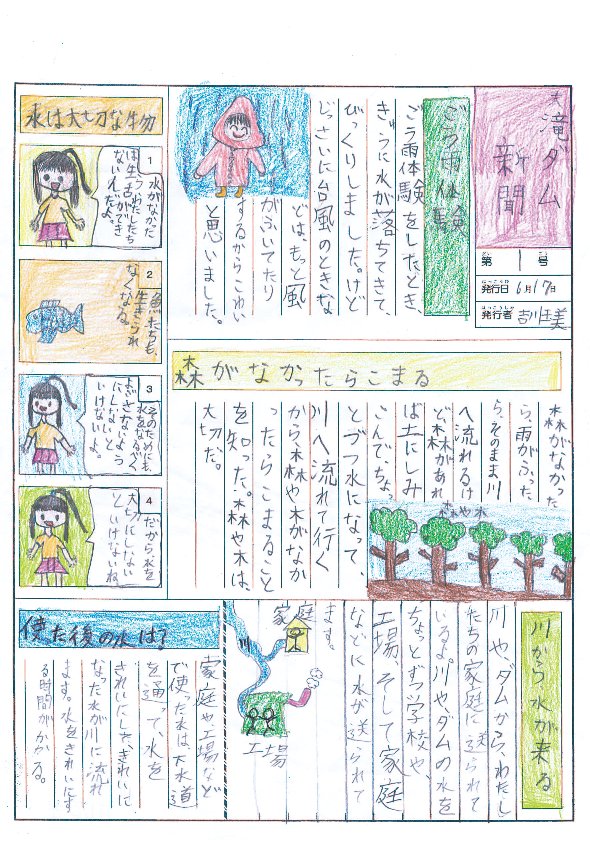 大滝ダム
新聞
第1号
発行日 6月17日
発行者
ごう雨体験
ごう雨体験をしたとき、
きゅうに水が落ちてきて、
びっくりしました。けど
じっさいに台風のときな
どは、もっと風
がふいてたり
するからこわい
と思いました。
森がなかったらこまる
森がなかった
ら、雨がふった
ら、そのまま川
へ流れるけ
ど、森があれ
ば土にしみ
こんで、ちょっ
とづつ水になって、
川へ流れて行く
から、森や木がなか
ったらこまること
を知った。森や木は、
大切だ。
森や木
川から水が来る
川や、ダムから、わたし
たちの家庭に送られて
いるよ。川や、ダムの水を
ちょっとずつ学校や、
工場、そして家庭
などに水が送られて
ます。
家庭
川
工場
使た後の水は?
家庭や工場など
で使った水は、下水道
を通って、水を
きれいにした、きれいに
なった水が川に流れ
ます。水をきれいにす
る時間がかかる。
水は大切な物
1
水がなかた
らわたしたち
は生活ができ
ないんだよ。
2
魚たちも、
生きられ
なくなる。
3
そのためにも
水をなるべく
よごさないよう
にしないと
いけないよ。
4
だから水を
大切にしない
といけないね。